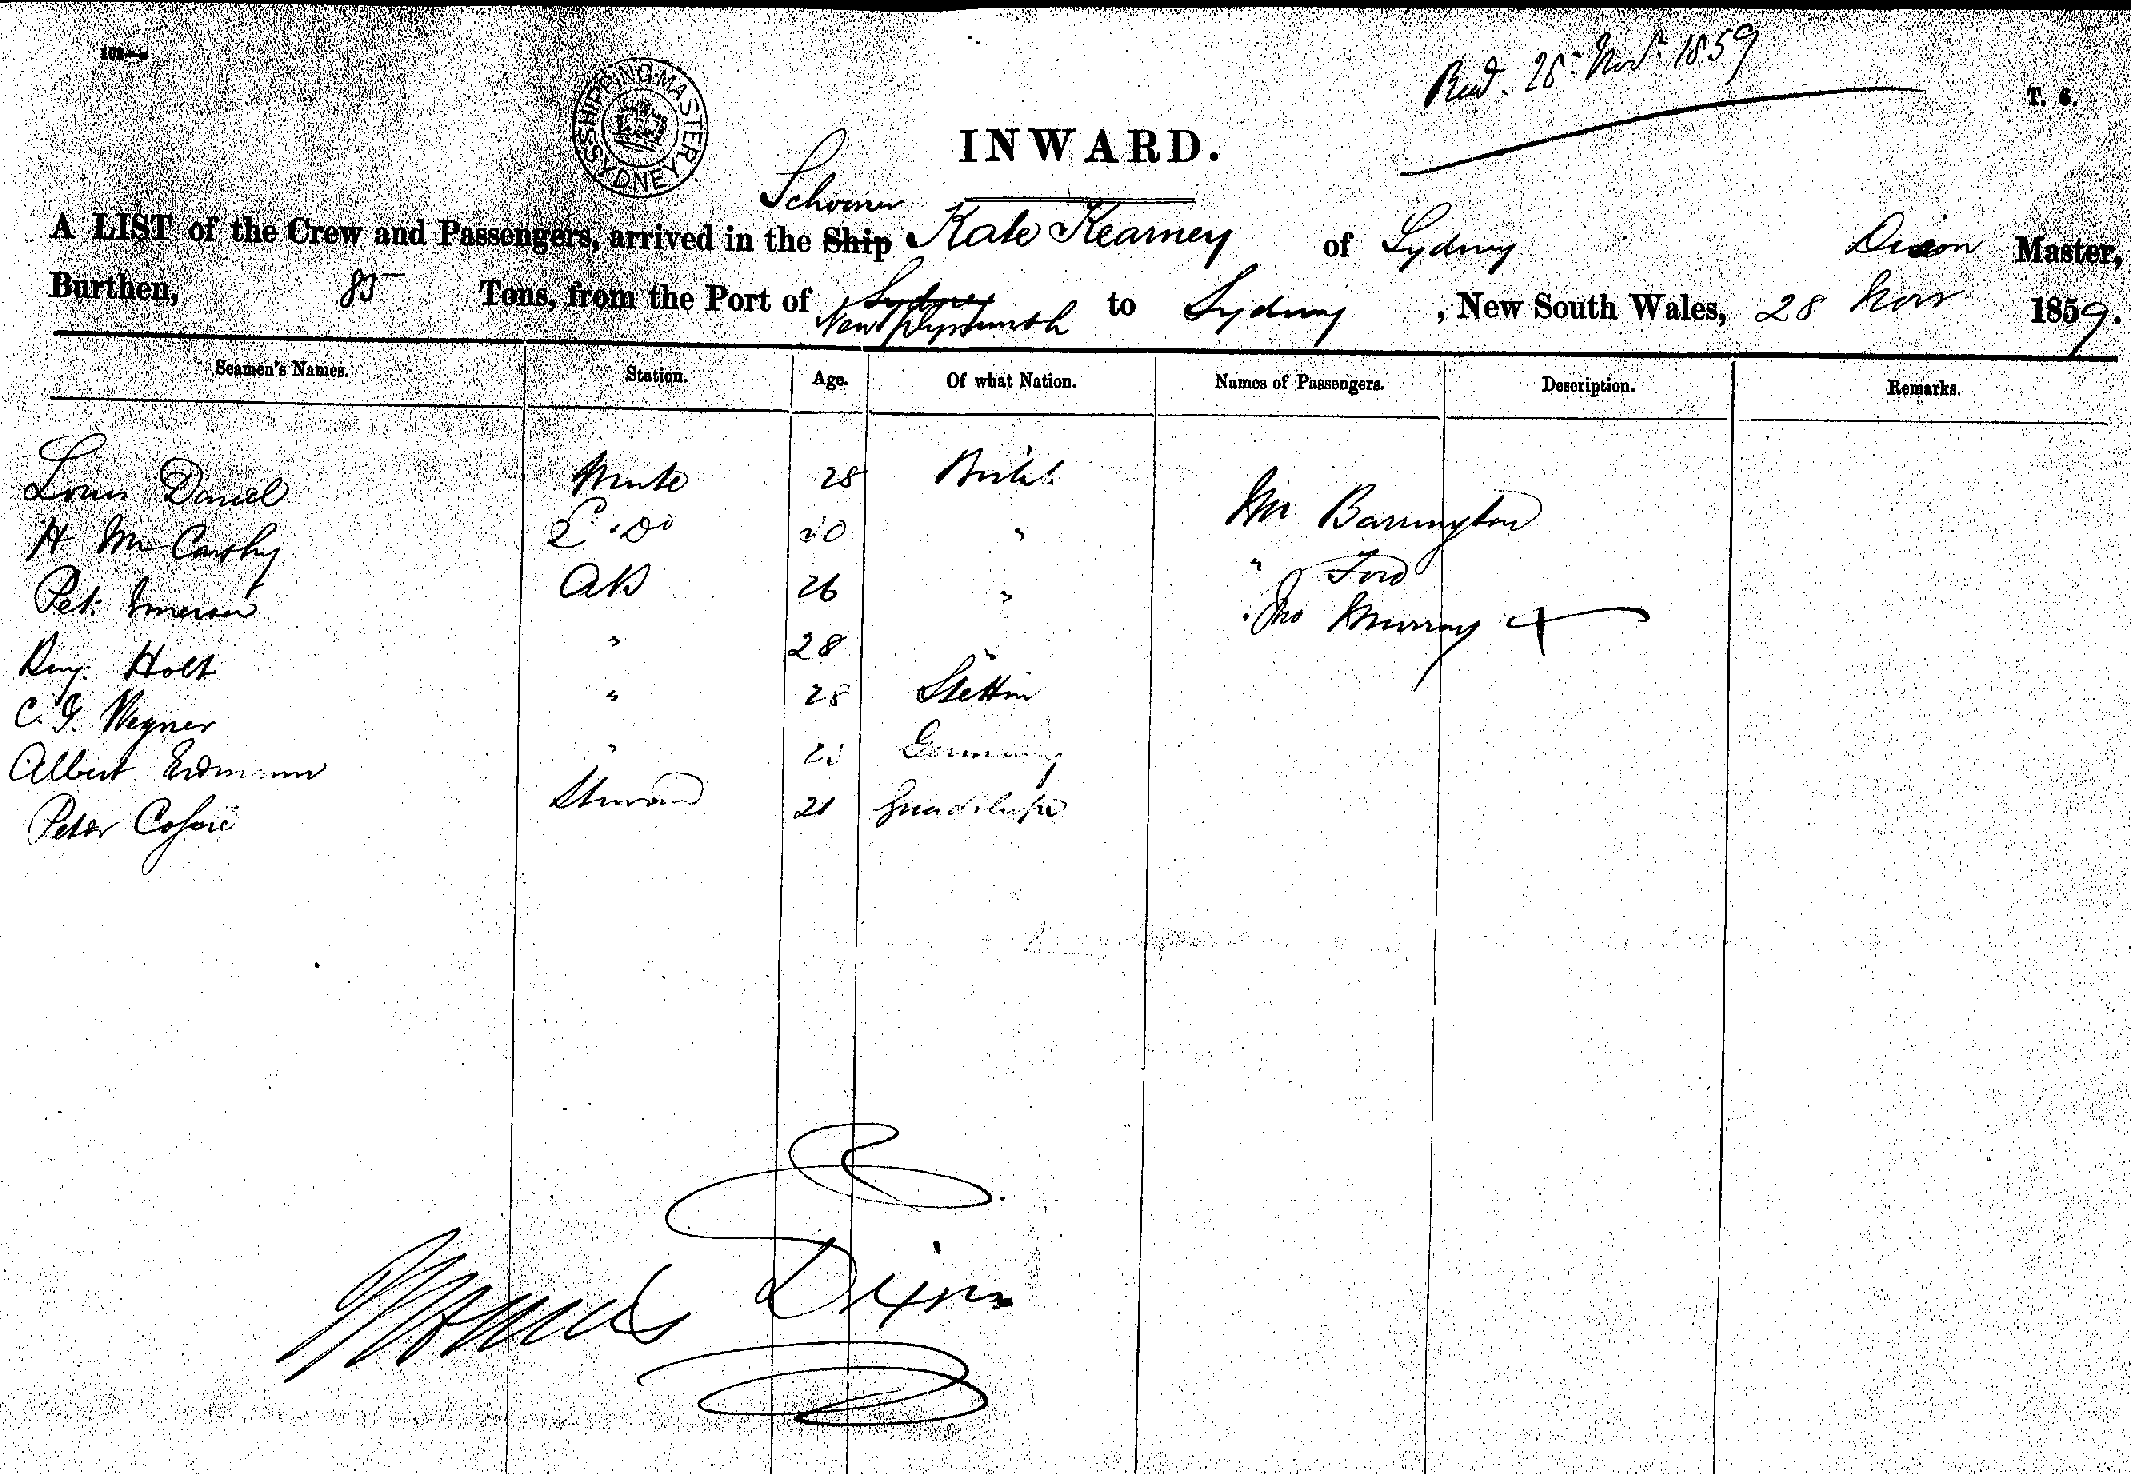 Recd. 28 Novr. 1859
T. 6.
SHIPPING MASTER SYDNEY
INWARD.
Schooner
A LIST of the Crew and Passengers, arrived in the Ship Kate Kearney of Sydney Dixon Master,
Burthen, 85 Tons, from the Port of Sydney New Plymouth to Sydney, New South Wales, 28 Novr 1859.
Seamen's Names. Station. Age. Of what Nation. Names of Passengers. Description. Remarks.
Louis Daniel Mate 28 British
H McCarthy 2d. Do 20 " Mr Barrington
Pet. Emerson AB 26 " " Ford
Benj. Holt " 28 " " Jno Murray
C. G. Wegner " 28 Stettin
Albert Erdmann " Germany
Peter Steward 21 Guadeloupe
Dixon